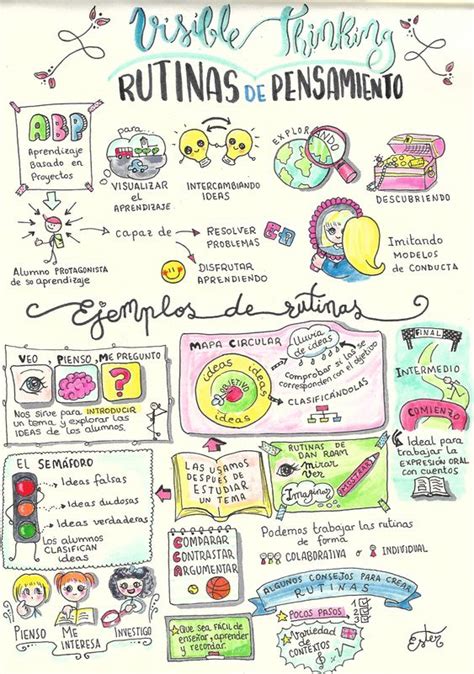 Visible Thinking
RUTINAS DE PENSAMIENTO
ABP
Aprendizaje
Basado en
Proyectos
para...
VISUALIZAR
EL
APRENDIZAJE
INTERCAMBIANDO
IDEAS
EXPLORANDO
DESCUBRIENDO
Alumno PROTAGONISTA
de su aprendizaje
capaz de
RESOLVER
PROBLEMAS
DISFRUTAR
APRENDIENDO
Imitando
MODELOS
DE CONDUCTA
Ejemplos de rutinas
VEO, PIENSO, ME PREGUNTO
?
Nos sirve para INTRODUCIR
un tema y explorar las
IDEAS de los alumnos.
MAPA CIRCULAR
ideas
ideas
ideas
ideas
OBJETIVO
lluvia
de ideas
Comprobar si las ideas se
corresponden con el objetivo
CLASIFICÁNDOLAS
FINAL
INTERMEDIO
COMIENZO
Ideal para
trabajar la
EXPRESIÓN ORAL
con cuentos
EL SEMÁFORO
Ideas falsas
Ideas dudosas
Ideas verdaderas
Los alumnos
CLASIFICAN
ideas
LAS USAMOS
DESPUÉS DE
ESTUDIAR
UN TEMA
RUTINAS DE
DAN ROAM
mirar
ver
Imaginar
MOSTRAR
COMPARAR
CONTRASTAR
ARGUMENTAR
C
C
A
Podemos trabajar las rutinas
de forma
COLABORATIVA o INDIVIDUAL
PIENSO
ME
INTERESA
INVESTIGO
ALGUNOS CONSEJOS PARA CREAR
RUTINAS
POCOS PASOS
1
2
3
Que sea FÁCIL de
enseñar, aprender
y recordar.
Variedad
de
CONTEXTOS
Ester